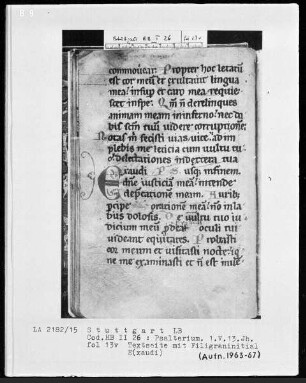 Stuttgart HB II 26 fol 13v
commouear. Propter hoc letatum
est cor meum et exultauit lingua
mea: insup et caro mea requie
scet in spe. Qm n derelinques
animam meam in inferno: nec da
bis scm tuu uidere corruptione.
Notas m fecisti uias uite: adim
plebis me leticia cum uultu tu
o: delectationes in dextera tua
Exaudi P. S usq; in finem.
dne iusticia mea: intende
deprecatione mea. Aurib;
pcipe oratione mea: no in la
biis dolosis. De uultu tuo iu
dicium meu pdeat: oculi tui
uideant equitates. Probasti
cor meum et uisitasti nocte: ig
ne me examinasti et n est inue
LA 2182/15 Stuttgart LB
Cod.HB II 26 : Psalterium. 1.V.13.Jh.
fol 13v Textseite mit Filigraninitial
E(xaudi)
(Aufn.1963-67)